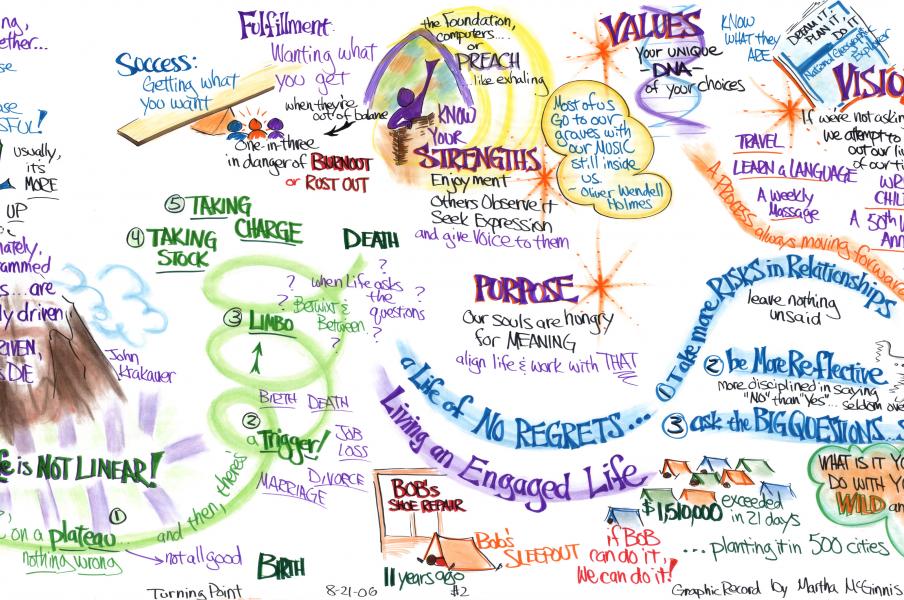 ng,
ether...
Success:
Getting what
you want
Fulfillment
Wanting what
you get
when they're
out of balance
One-in-three
in danger of BURNOUT
or RUST OUT
the Foundation,
computers....
or
PREACH
...like exhaling
KNOW
YOUR
STRENGTHS
Enjoyment
Others Observe it
Seek Expression
and give VOICE to them
Most of us
Go to our
graves with
our MUSIC
still inside
us.
- Oliver Wendell
Holmes
VALUES
Your UNIQUE
- DNA -
of your choices
KNOW
WHAT they
ARE
DREAM IT.
PLAN IT.
DO IT
National Geographic
Explorer
VISIO
If we're not askin
we attempt to
out our li
of our ti
TRAVEL
LEARN a LANGUAGE
A weekly
Massage
WR
CHIL
A 50th W
Ann
A PROCESS always moving forward
usually,
it's
MORE
UP
nately,
rammed
s... are
ly driven
RIVEN,
S DIE
John
Krakauer
fe is NOT LINEAR!
on a plateau...
nothing wrong
①
not all good
and then, there's
② a Trigger!
BIRTH DEATH
JOB
LOSS
DIVORCE
MARRIAGE
③ LIMBO
④ TAKING
STOCK
⑤ TAKING
CHARGE
DEATH
?
? when Life asks
the ?
questions
? Betwixt &
Between ?
?
BIRTH
PURPOSE
Our souls are hungry
for MEANING
align life & work with THAT
a Life of NO REGRETS...
Living an Engaged Life
① Take more RISKS in Relationships
leave nothing
unsaid
② be More Reflective
more disciplined in saying
"No" than "Yes"... seldom ove
③ ask the BIG QUESTIONS...S
BOB's
SHOE REPAIR
11 years ago
Bob's
SLEEPOUT
if BOB
can do it,
We can do it!
$1,510,000 exceeded
in 21 days
...planting it in 500 cities
WHAT IS IT YO
DO WITH YO
WILD an
Turning Point
8-21-06
#2
Graphic Record by Martha McGinnis